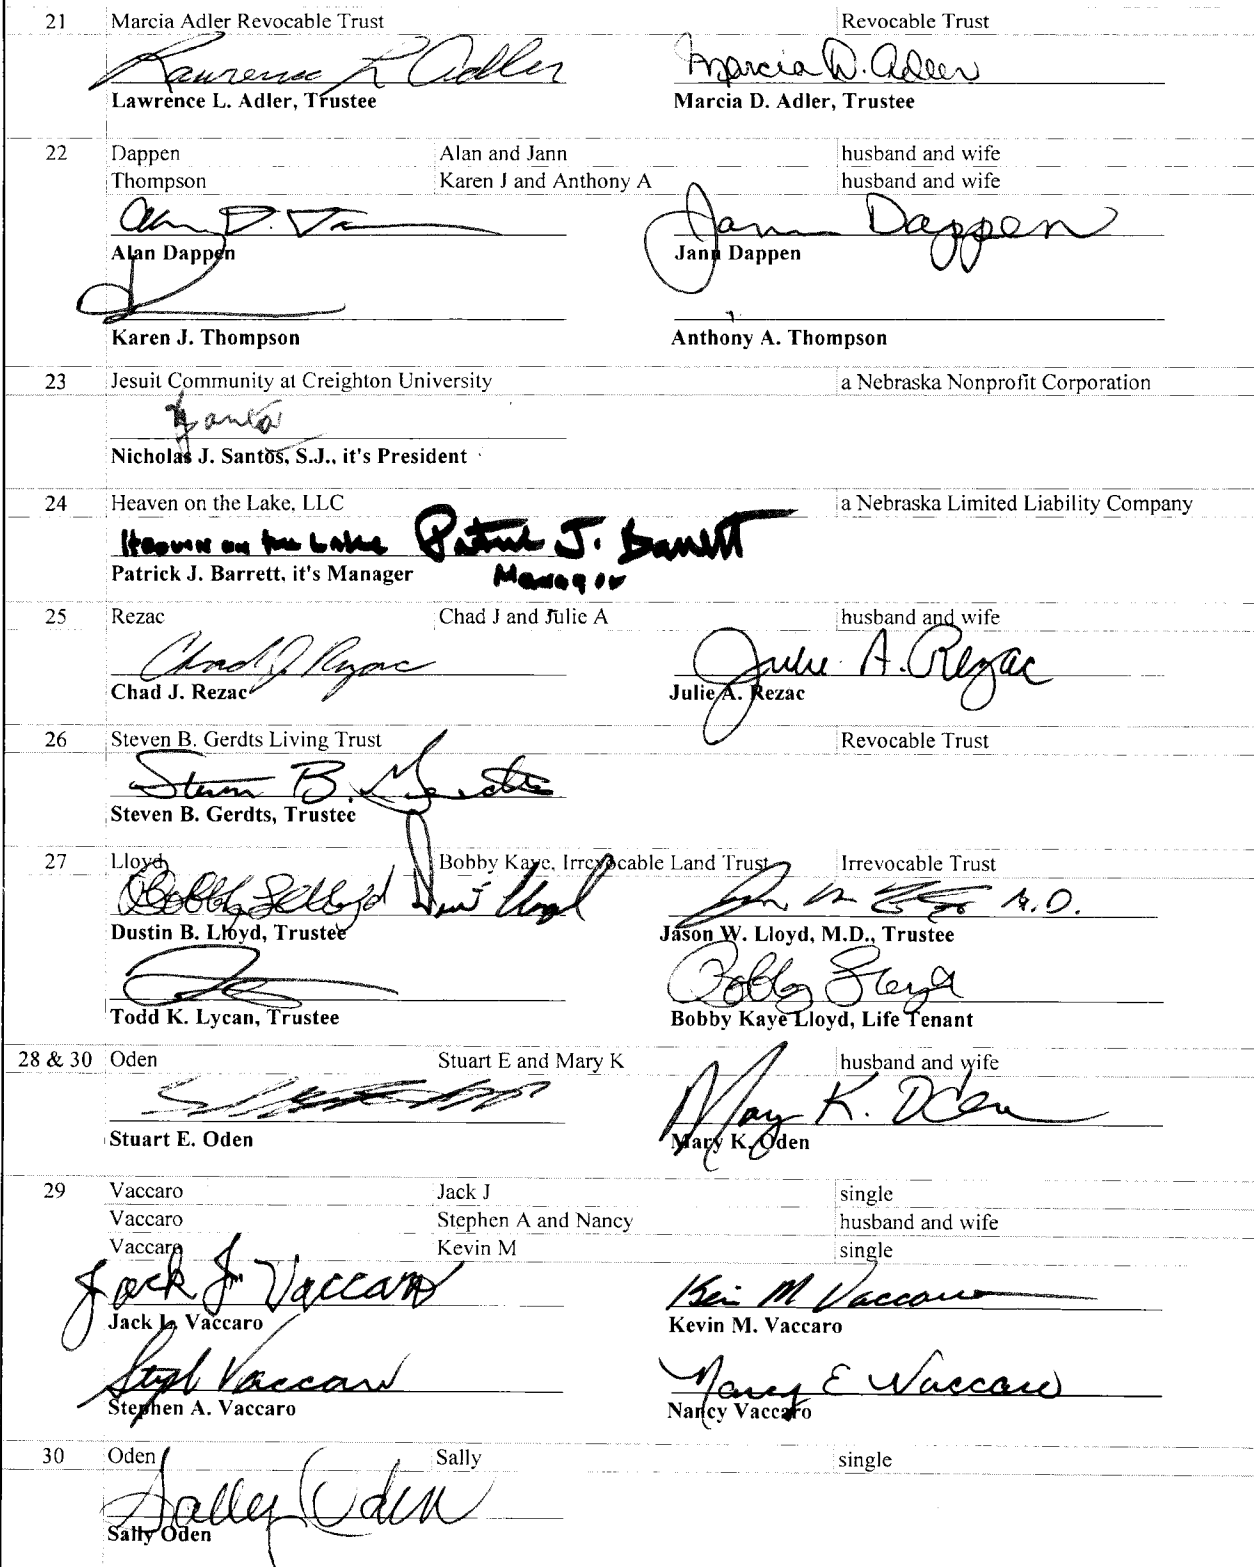 21 Marcia Adler Revocable Trust Revocable Trust
Lawrence L Adler Marcia D. Adler
Lawrence L. Adler, Trustee Marcia D. Adler, Trustee
22 Dappen Alan and Jann husband and wife
Thompson Karen J and Anthony A husband and wife
Jann Dappen
Alan Dappen Jann Dappen
Karen J. Thompson Anthony A. Thompson
23 Jesuit Community at Creighton University a Nebraska Nonprofit Corporation
Nicholas J. Santos, S.J., it's President
24 Heaven on the Lake, LLC a Nebraska Limited Liability Company
Heaven on the Lake Patrick J. Barrett
Patrick J. Barrett, it's Manager Manager
25 Rezac Chad J and Julie A husband and wife
Chad J Rezac Julie A. Rezac
Chad J. Rezac Julie A. Rezac
26 Steven B. Gerdts Living Trust Revocable Trust
Steven B. Gerdts
Steven B. Gerdts, Trustee
27 Lloyd Bobby Kaye, Irrevocable Land Trust Irrevocable Trust
Bobby Lloyd M.D.
Dustin B. Lloyd, Trustee Jason W. Lloyd, M.D., Trustee
Bobby Lloyd
Todd K. Lycan, Trustee Bobby Kaye Lloyd, Life Tenant
28 & 30 Oden Stuart E and Mary K husband and wife
Mary K. Oden
Stuart E. Oden Mary K. Oden
29 Vaccaro Jack J single
Vaccaro Stephen A and Nancy husband and wife
Vaccaro Kevin M single
Jack J. Vaccaro Kevin M Vaccaro
Jack L. Vaccaro Kevin M. Vaccaro
Steph Vaccaro Nancy E Vaccaro
Stephen A. Vaccaro Nancy Vaccaro
30 Oden Sally single
Sally Oden
Sally Oden